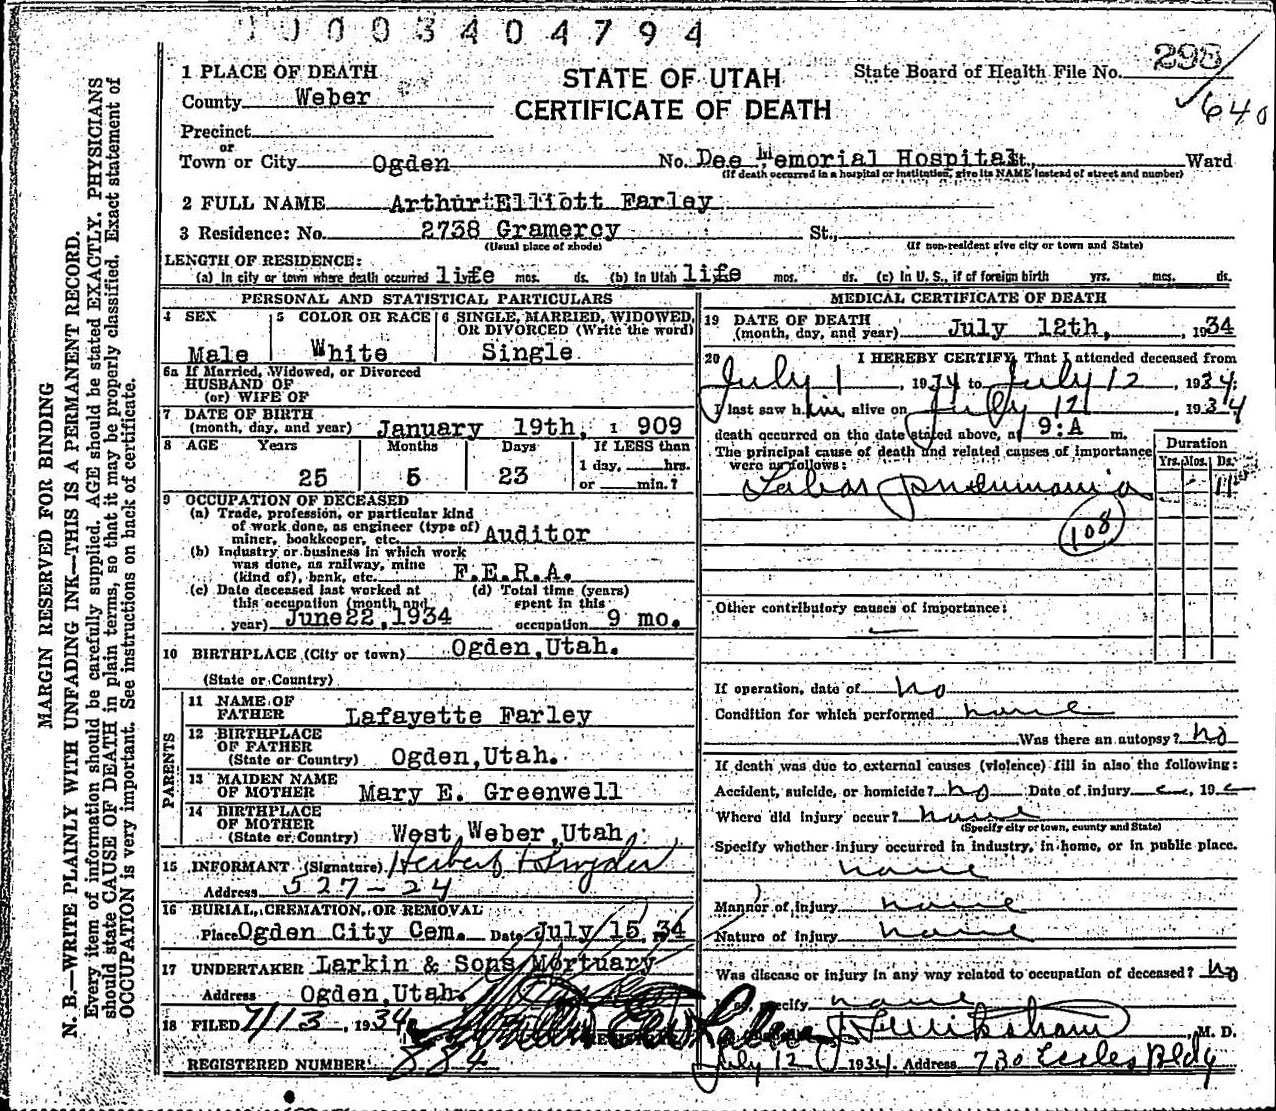 0003404794
298
640
1 PLACE OF DEATH
STATE OF UTAH
CERTIFICATE OF DEATH
State Board of Health File No.
County Weber
Precinct
or
Town or City Ogden No. Dee Memorial Hospital St., Ward
(If death occurred in a hospital or institution, give its NAME instead of street and number)
2 FULL NAME Arthur Elliott Farley
3 Residence: No. 2738 Gramercy St.,
(Usual place of abode) (If non-resident give city or town and State)
LENGTH OF RESIDENCE:
(a) In city or town where death occurred life mos. ds. (b) In Utah life mos. ds. (c) In U. S., if of foreign birth yrs. mos. ds.
PERSONAL AND STATISTICAL PARTICULARS
4 SEX
Male
5 COLOR OR RACE
White
6 SINGLE, MARRIED, WIDOWED,
OR DIVORCED (Write the word)
Single
6a If Married, Widowed, or Divorced
HUSBAND OF
(or) WIFE OF
7 DATE OF BIRTH
(month, day, and year) January 19th, 1909
8 AGE Years Months Days If LESS than
25 5 23 1 day, hrs.
or min.?
9 OCCUPATION OF DECEASED
(a) Trade, profession, or particular kind
of work done, as engineer (type of)
miner, bookkeeper, etc. Auditor
(b) Industry or business in which work
was done, as railway, mine
(kind of), bank, etc. F.E.R.A.
(c) Date deceased last worked at
this occupation (month and
year) June22,1934
(d) Total time (years)
spent in this
occupation 9 mo.
10 BIRTHPLACE (City or town) Ogden,Utah.
(State or Country)
PARENTS
11 NAME OF
FATHER Lafayette Farley
12 BIRTHPLACE
OF FATHER
(State or Country) Ogden,Utah.
13 MAIDEN NAME
OF MOTHER Mary E. Greenwell
14 BIRTHPLACE
OF MOTHER
(State or Country) West Weber,Utah
15 INFORMANT (Signature) Herbert Snyder
Address 527-24
16 BURIAL, CREMATION, OR REMOVAL
Place Ogden City Cem. Date July 15, 34
17 UNDERTAKER Larkin & Sons Mortuary
Address Ogden,Utah.
18 FILED 7/13, 1934
REGISTERED NUMBER 884
MEDICAL CERTIFICATE OF DEATH
19 DATE OF DEATH
(month, day, and year) July 12th, 1934
20 I HEREBY CERTIFY, That I attended deceased from
July 1, 1934 to July 12, 1934
I last saw him alive on July 12, 1934
death occurred on the date stated above, at 9:A m.
The principal cause of death and related causes of importance
were as follows:
Duration
Yrs. Mos. Ds.
Lobar pneumonia 11
108
Other contributory causes of importance:
If operation, date of No
Condition for which performed none
Was there an autopsy? No
If death was due to external causes (violence) fill in also the following:
Accident, suicide, or homicide? No Date of injury , 19
Where did injury occur? none
(Specify city or town, county and State)
Specify whether injury occurred in industry, in home, or in public place.
none
Manner of injury none
Nature of injury none
Was disease or injury in any way related to occupation of deceased? No
If so, specify none
M. D.
July 12 1934 Address 730 Eccles Bldg
MARGIN RESERVED FOR BINDING
N. B.—WRITE PLAINLY WITH UNFADING INK—THIS IS A PERMANENT RECORD.
Every item of information should be carefully supplied. AGE should be stated EXACTLY. PHYSICIANS
should state CAUSE OF DEATH in plain terms, so that it may be properly classified. Exact statement of
OCCUPATION is very important. See instructions on back of certificate.